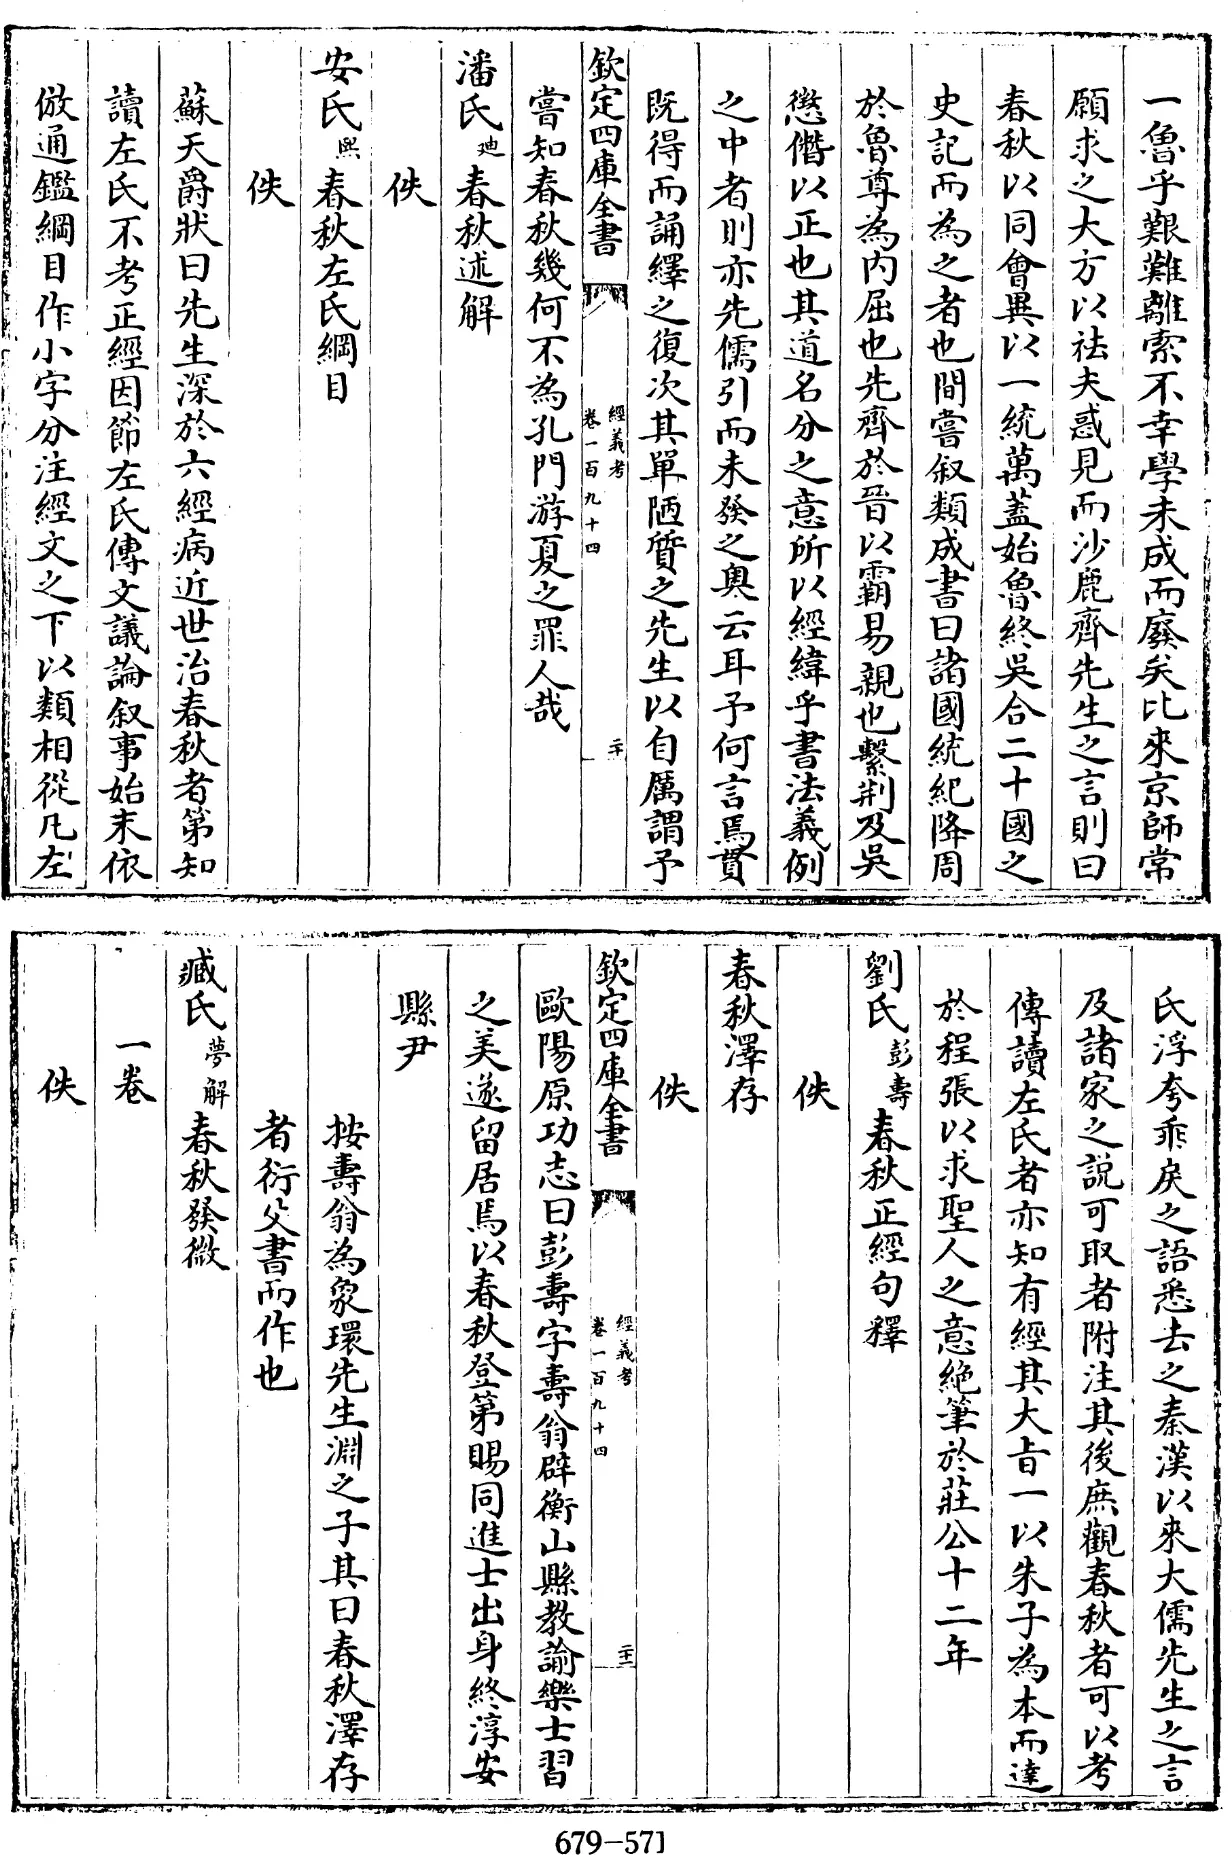 一魯乎艱難離索不幸學未成而廢矣比來京師常
願求之大方以祛夫惑見而沙鹿齊先生之言則曰
春秋以同會異以一統萬蓋始魯終吳合二十國之
史記而為之者也間嘗叙類成書曰諸國統紀降周
於魯尊為内屈也先齊於晉以霸易親也繫荆及吳
懲僭以正也其道名分之意所以經緯乎書法義例
之中者則亦先儒引而未發之奥云耳予何言焉貫
既得而誦繹之復次其單陋質之先生以自厲謂予
欽定四庫全書
經義考
卷一百九十四
二十
嘗知春秋幾何不為孔門游夏之罪人哉
潘氏廸春秋述解
佚
安氏熙春秋左氏綱目
佚
蘇天爵狀曰先生深於六經病近世治春秋者第知
讀左氏不考正經因節左氏傳文議論叙事始末依
倣通鑑綱目作小字分注經文之下以類相從凡左
氏浮夸乖戾之語悉去之秦漢以來大儒先生之言
及諸家之説可取者附注其後庶觀春秋者可以考
傳讀左氏者亦知有經其大旨一以朱子為本而達
於程張以求聖人之意絶筆於莊公十二年
劉氏彭壽春秋正經句釋
佚
春秋澤存
佚
欽定四庫全書
經義考
卷一百九十四
二十一
歐陽原功志曰彭壽字壽翁辟衡山縣教諭樂士習
之美遂留居焉以春秋登第賜同進士出身終淳安
縣尹
按壽翁為象環先生淵之子其曰春秋澤存
者衍父書而作也
臧氏夢解春秋發微
一卷
佚
679-571